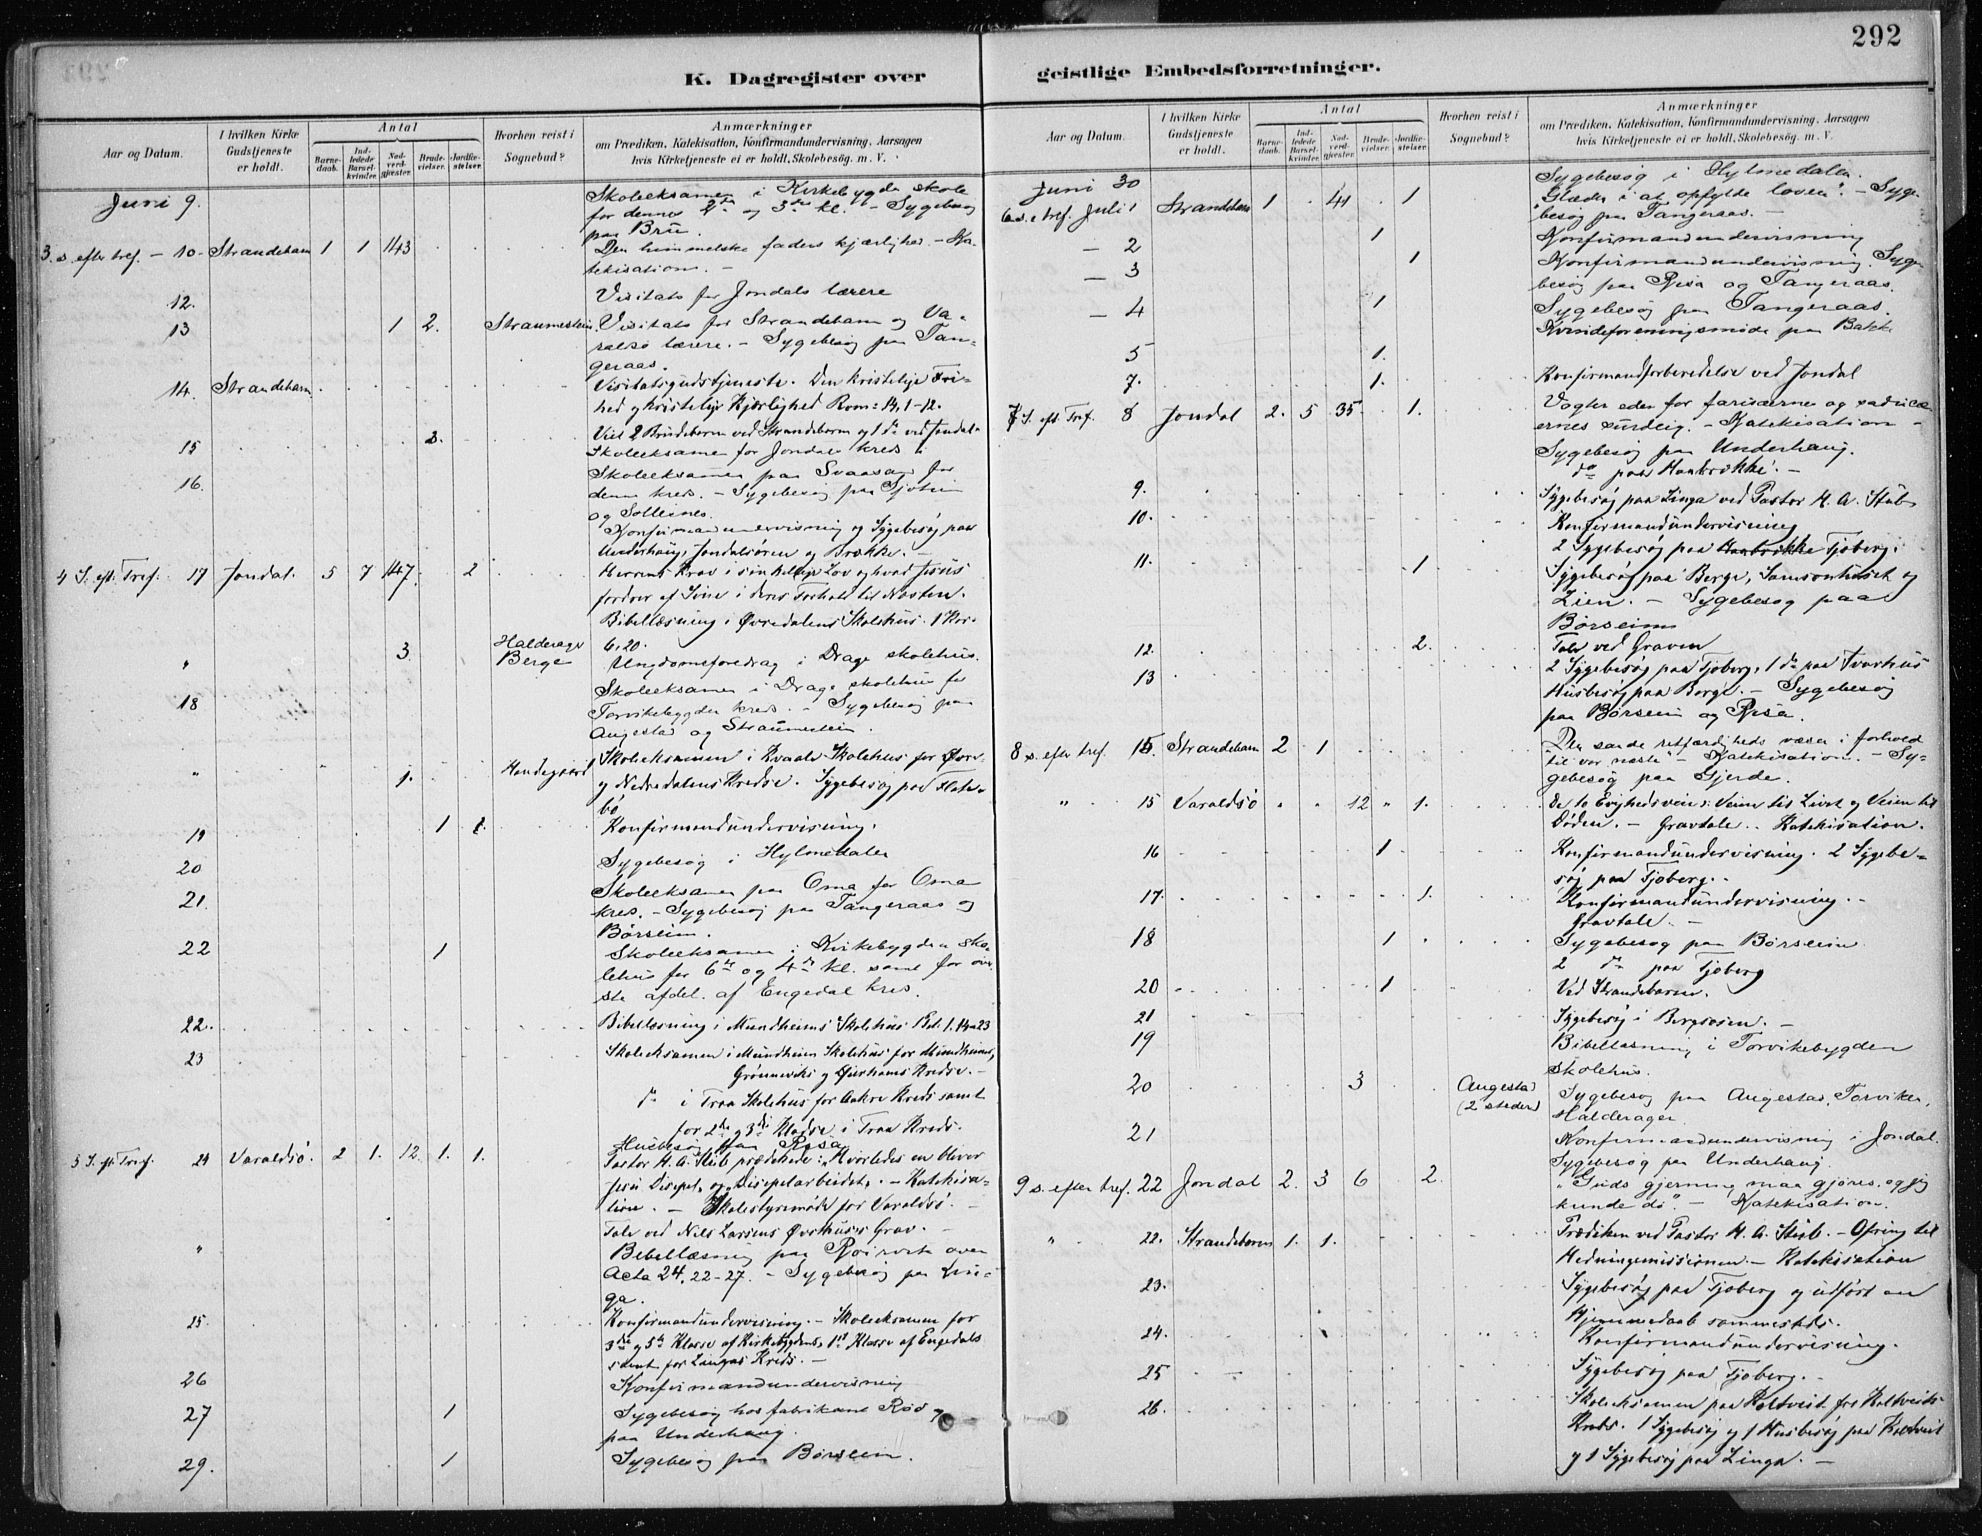 292
K. Dagregister over
geistlige Embedsforretninger.
Aar og Datum.
I hvilken Kirke Gudstjeneste er holdt.
Antal
Barnedaab.
Indledede Barselkvinder.
Nadverdgjester.
Brudevielser.
Jordfæstelser.
Hvorhen reist i Sognebud?
Anmærkninger
om Prædiken, Katekisation, Konfirmandundervisning, Aarsagen
hvis Kirketjeneste ei er holdt, Skolebesög. m. V.
Juni 9. Skoleeksamen i Kirkebygde skole
for dennes 2den og 3die kl. – Sygebesøg
paa Brü.
3. s. efter tref. – 10. Strandebarm 1 1 143 Den himmelske faders kjærlighed. – Ka-
tekisation. –
12. Visitats for Jondals lærere
13 1 2. Straumestein. Visitats for Strandebarm og Va-
raldsö lærere. – Sygebesøg paa Tan-
geraas.
14. Strandebarm Visitatsgudstjeneste. Den kristelige Fri-
hed og kristelig Kjærlighed Rom: 14, 1-12.
15 3. Viet 2 Brudeborn ved Strandebarm og 1 do ved Jondal.
Skoleeksamen for Jondals kreds
16. Skoleeksamen paa Svaasand for
denne kreds. – Sygebesøg paa
og Solleines.
Konfirmandundervisning og Sygebesög paa
Underhaug, Jondalsören og Brække. –
4 S. eft. Tref. 17 Jondal. 5 7 147 2 Herrens Krav i sin hellige Lov og hvad Jesus
fordrer af Sine i deres Forhold til Næsten.
Bibellæsning i Övredalens Skolehus. 1 Kor.
6, 20.
" 3. Halderager Berge Ungdomsforedrag i Drage skolehus.
18 Skoleeksamen i Drage skolehus for
Torvikebygden kreds. – Sygebesøg paa
Augestad og Straumestein.
" 1. Haudegaard Skoleeksamen i Kvaale Skolehus for Övre-
og Nedredalens Kredse. Sygebesög paa Flate-
bö
19 1 1. Konfirmandundervisning.
20 Sygebesøg i Hylmedalen
21. Skoleeksamen paa Oma for Oma
kreds. – Sygebesøg paa Tangeraas og
Børseim.
22 1 Skoleeksamen i Kirkebygden sko-
lehus for 6te og 4de kl. samt for øver-
ste afdel. af Engedal kreds.
22. Bibellæsning i Mundheims Skolehus Pet. 1. 14-23
23 Skoleeksamen i Mundheim Skolehus for Mundheims,
Grönneviks og Gjerhams Kredse. –
do i Traa Skolehus for Aakre Kreds samt
for 2den og 3die Klasse i Traa Kreds.
Husbesøg paa Røsa
5 S. eft. Tref. 24 Varaldsö. 2 1. 12. 1. 1. Pastor H. A. Stub prædikede: „Hvorledes en bliver
Jesu Discipel, og Discipelarbeidet. – Katekisa-
tion. – Skolestyremöde for Varaldsö. –
Tale ved Nils Larsens Övrehuses Grav. –
" Bibellæsning paa Röirvik over
Acta 24, 22-27. – Sygebesøg paa Lin-
ga.
25. Konfirmandundervisning. – Skoleeksamen for
3die og 5te Klasse af Kirkebygdens, 1ste Klasse af Engedals
samt for Lingas Kreds. –
26 Konfirmandundervisning
27 1 Sygebesøg hos fabrikant Rød og
paa Underhaug.
29. 1 Sygebesøg paa Børseim.
Juni 30 Sygebesøg i Hylmedalen.
6 s. e tref. Juli 1 Strandebarm 1 41 1 „Glæden i at opfylde loven". – Syge-
besøg paa Tangeraas. –
– 2 1 Konfirmandundervisning
– 3 1 Konfirmandundervisning. Syge-
besøg paa Røsa og Tangeraas.
– 4 1 Sygebesøg paa Tangeraas.
Kvindeforeningsmøde paa Bakke
5 1.
7. 1. Konfirmandforberedelse ved Jondal
7 S. eft. Tref. 8 Jondal 2. 5 35. 1. Vogter eder for farisæernes og saducæ-
ernes surdeig. – Katekisation –
Sygebesøg paa Underhaug.
do paa –
9. Sygebesög paa Linga ved Pastor H. A. Stub
10. Konfirmandundervisning
2 Sygebesög paa Tjoberg.
11. 1 Sygebesög paa Berge, Samsonhuset og
Lien. – Sygebesøg paa
Børseim
12. 2. Tale ved Graven
13 2 Sygebesög paa Tjoberg, 1 do paa
Husbesög paa Berge. – Sygebesøg
paa Børseim og Røsa.
8 s. efter tref. 15. Strandebarm 2 1 „Den sande retfærdigheds væsen i forhold
til vor næste" – Katekisation. – Sy-
gebesøg paa Gjerde.
" 15 Varaldsö " " 12 " 1. De to Evighedsveie: Veien til Livet og Veien til
Döden. – Gravtale. Katekisation.
16 1 Konfirmandundervisning. 2 Sygebe-
søg paa Tjoberg.
17. 1. Konfirmandundervisning. –
Gravtale. –
18 1 Sygebesøg paa Børseim
2 do paa Tjoberg
20 1 Ved Strandebarm.
21 Sygebesög i Bergsosen. –
19 Bibellæsning i Torvikebygden
skolehus.
20 3 Augestad (2 steder) Sygebesøg paa Augestad, Torviken,
Halderager
21 Konfirmandundervisning i Jondal.
Sygebesøg paa Underhaug.
9 s. efter tref. 22 Jondal 2. 3 6 2. „Guds gjerning maa gjøres, og jeg
kunde dø". – Katekisation.
" 22. Strandebarm 1. 1. Prædiken ved Pastor H. A. Stub. – Ofring til
Hedningemissionen – Katekisation
23. Sygebesög paa Tjoberg og udfört en
hjemmedaab sammesteds.
24. Konfirmandundervisning.
25 Sygebesög paa Tjoberg. –
26. Skoleeksamen paa Koltveit for Koltveits
Kreds. 1 Sygebesög og 1 Husbesög paa Koltveit
og 1 Sygebesög paa Linga. –